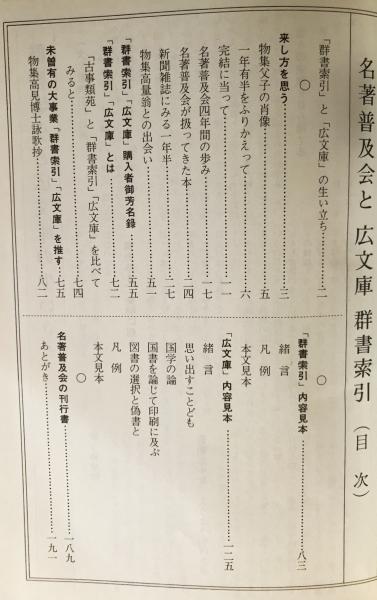 名著普及会と 広文庫 群書索引 (目 次)
「群書索引」と「広文庫」の生い立ち………二
○
来し方を思う………三
物集父子の肖像………五
一年有半をふりかえって………六
完結に当って………一一
名著普及会四年間の歩み………一七
名著普及会が扱ってきた本………二四
新聞雑誌にみる一年半………二七
物集高量翁との出会い………五一
『群書索引』『広文庫』購入者御芳名録………五五
『群書索引』『広文庫』とは………七二
「古事類苑」と「群書索引」「広文庫」を比べて
みると………七四
未曾有の大事業『群書索引』『広文庫』を推す………七五
物集高見博士詠歌抄………八二
○
『群書索引』内容見本………八三
緒 言
凡 例
本文見本
『広文庫』内容見本………一二五
緒 言
思い出すことども
国学の論
国書を論じて印刷に及ぶ
図書の選択と偽書と
凡 例
本文見本
○
名著普及会の刊行書………一八九
あとがき………一九一